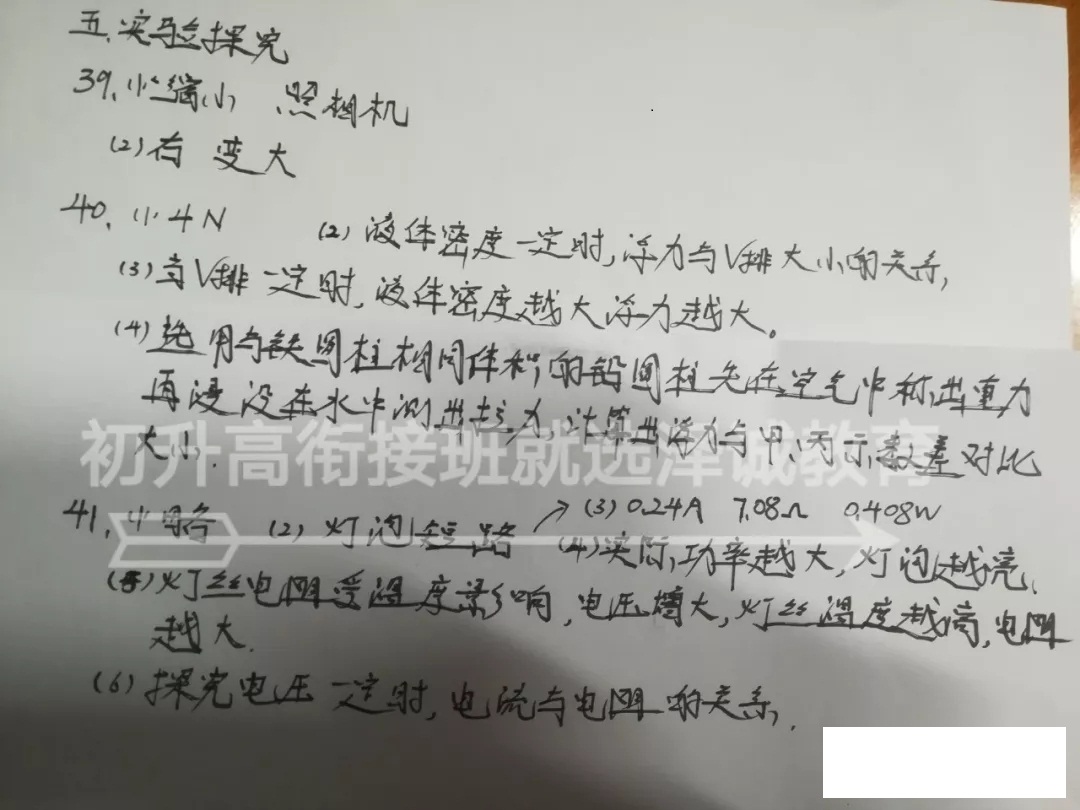 五.实验探究
39. (1) 缩小 照相机
(2) 右 变大
40. (1) 4N (2) 液体密度一定时, 浮力与V排大小的关系,
(3) 当V排一定时, 液体密度越大浮力越大。
(4) 选用与铁圆柱相同体积的铅圆柱先在空气中称出重力
再浸没在水中测出拉力, 计算出浮力与甲、丙示数差对比
大小.
初升高衔接班就选泽诚教育
41. (1) 略 (2) 灯泡短路 (3) 0.24A 7.08Ω 0.408W
(4) 实际功率越大, 灯泡越亮.
(5) 灯丝电阻受温度影响, 电压增大, 灯丝温度越高, 电阻
越大.
(6) 探究电压一定时, 电流与电阻的关系.